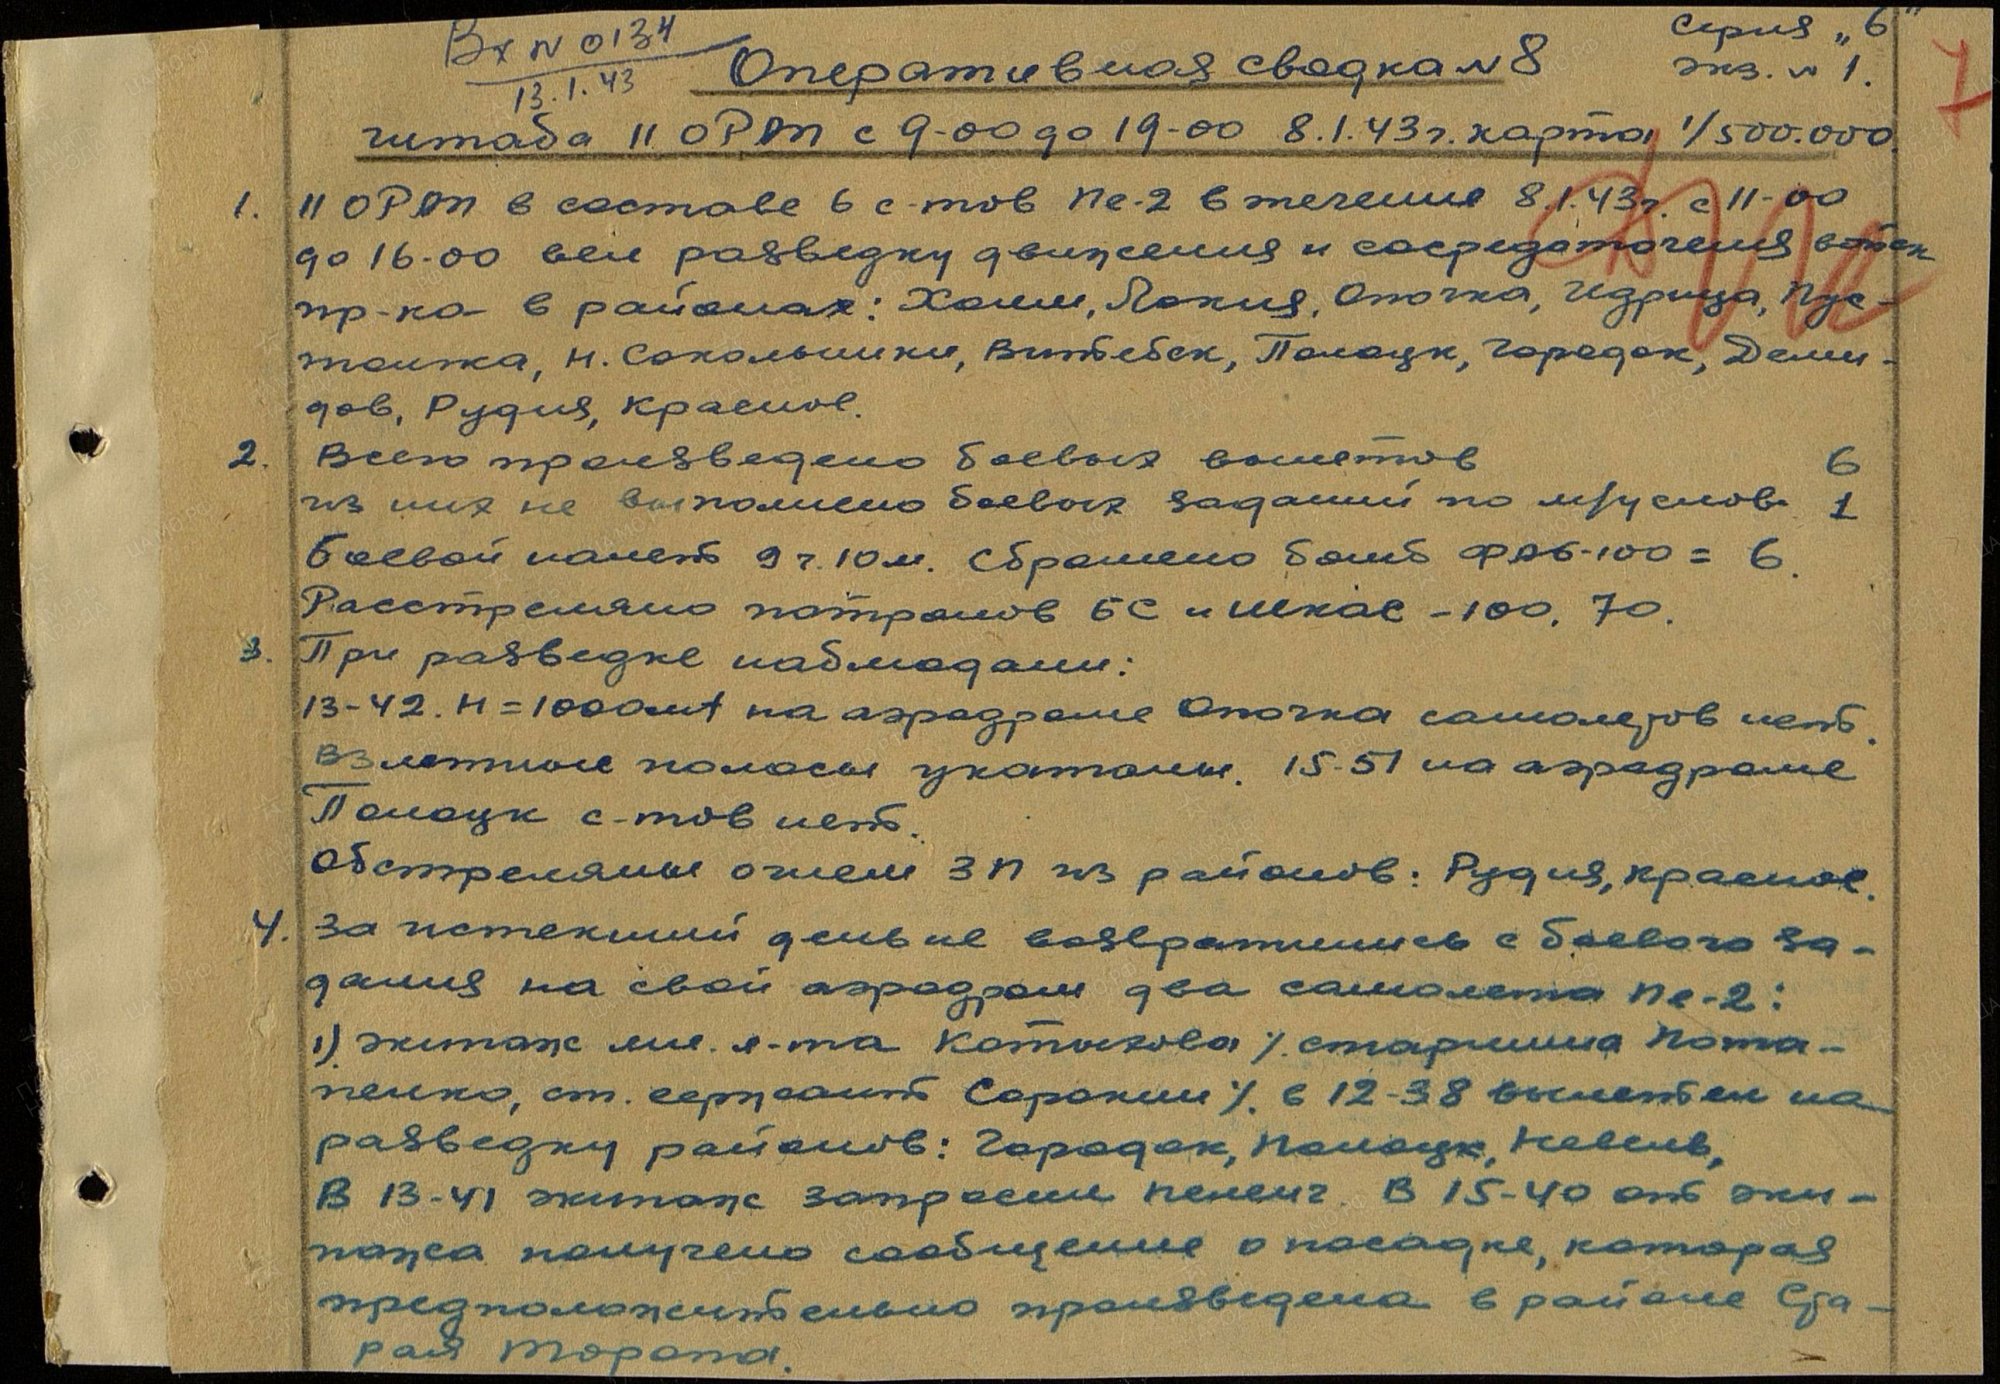 Вх N 0134
13.1.43
Серия „Б"
экз. N 1.
Оперативная сводка N 8
штаба 11 ОРАП с 9-00 до 19-00 8.1.43 г. карта 1/500.000.
1. 11 ОРАП в составе 6 с-тов Пе-2 в течение 8.1.43 г. с 11-00
до 16-00 вел разведку движения и сосредоточения войск
пр-ка в районах: Холм, Локня, Опочка, Идрица, Пус-
тошка, Н. Сокольники, Витебск, Полоцк, Городок, Деми-
дов, Рудня, Красное.
2. Всего произведено боевых вылетов 6
из них не выполнено боевых заданий по м/услов. 1
Боевой налет 9 ч. 10 м. Сброшено бомб ФАБ-100 = 6.
Расстреляно патронов БС и Шкас - 100, 70.
3. При разведке наблюдали:
13-42. Н = 1000 мт на аэродроме Опочка самолетов нет.
Взлетные полосы укатаны. 15-51 на аэродроме
Полоцк с-тов нет.
Обстреляны огнем ЗП из районов: Рудня, Красное.
4. За истекший день не возвратились с боевого за-
дания на свой аэродром два самолета Пе-2:
1) экипаж мл. л-та Котыхова /. старшина Пота-
пенко, ст. сержант Сорокин /. в 12-38 вылетел на
разведку районов: Городок, Полоцк, Невель,
В 13-41 экипаж запросил пеленг. В 15-40 от эки-
пажа получено сообщение о посадке, которая
предположительно произведена в районе Ста-
рая Торопа.